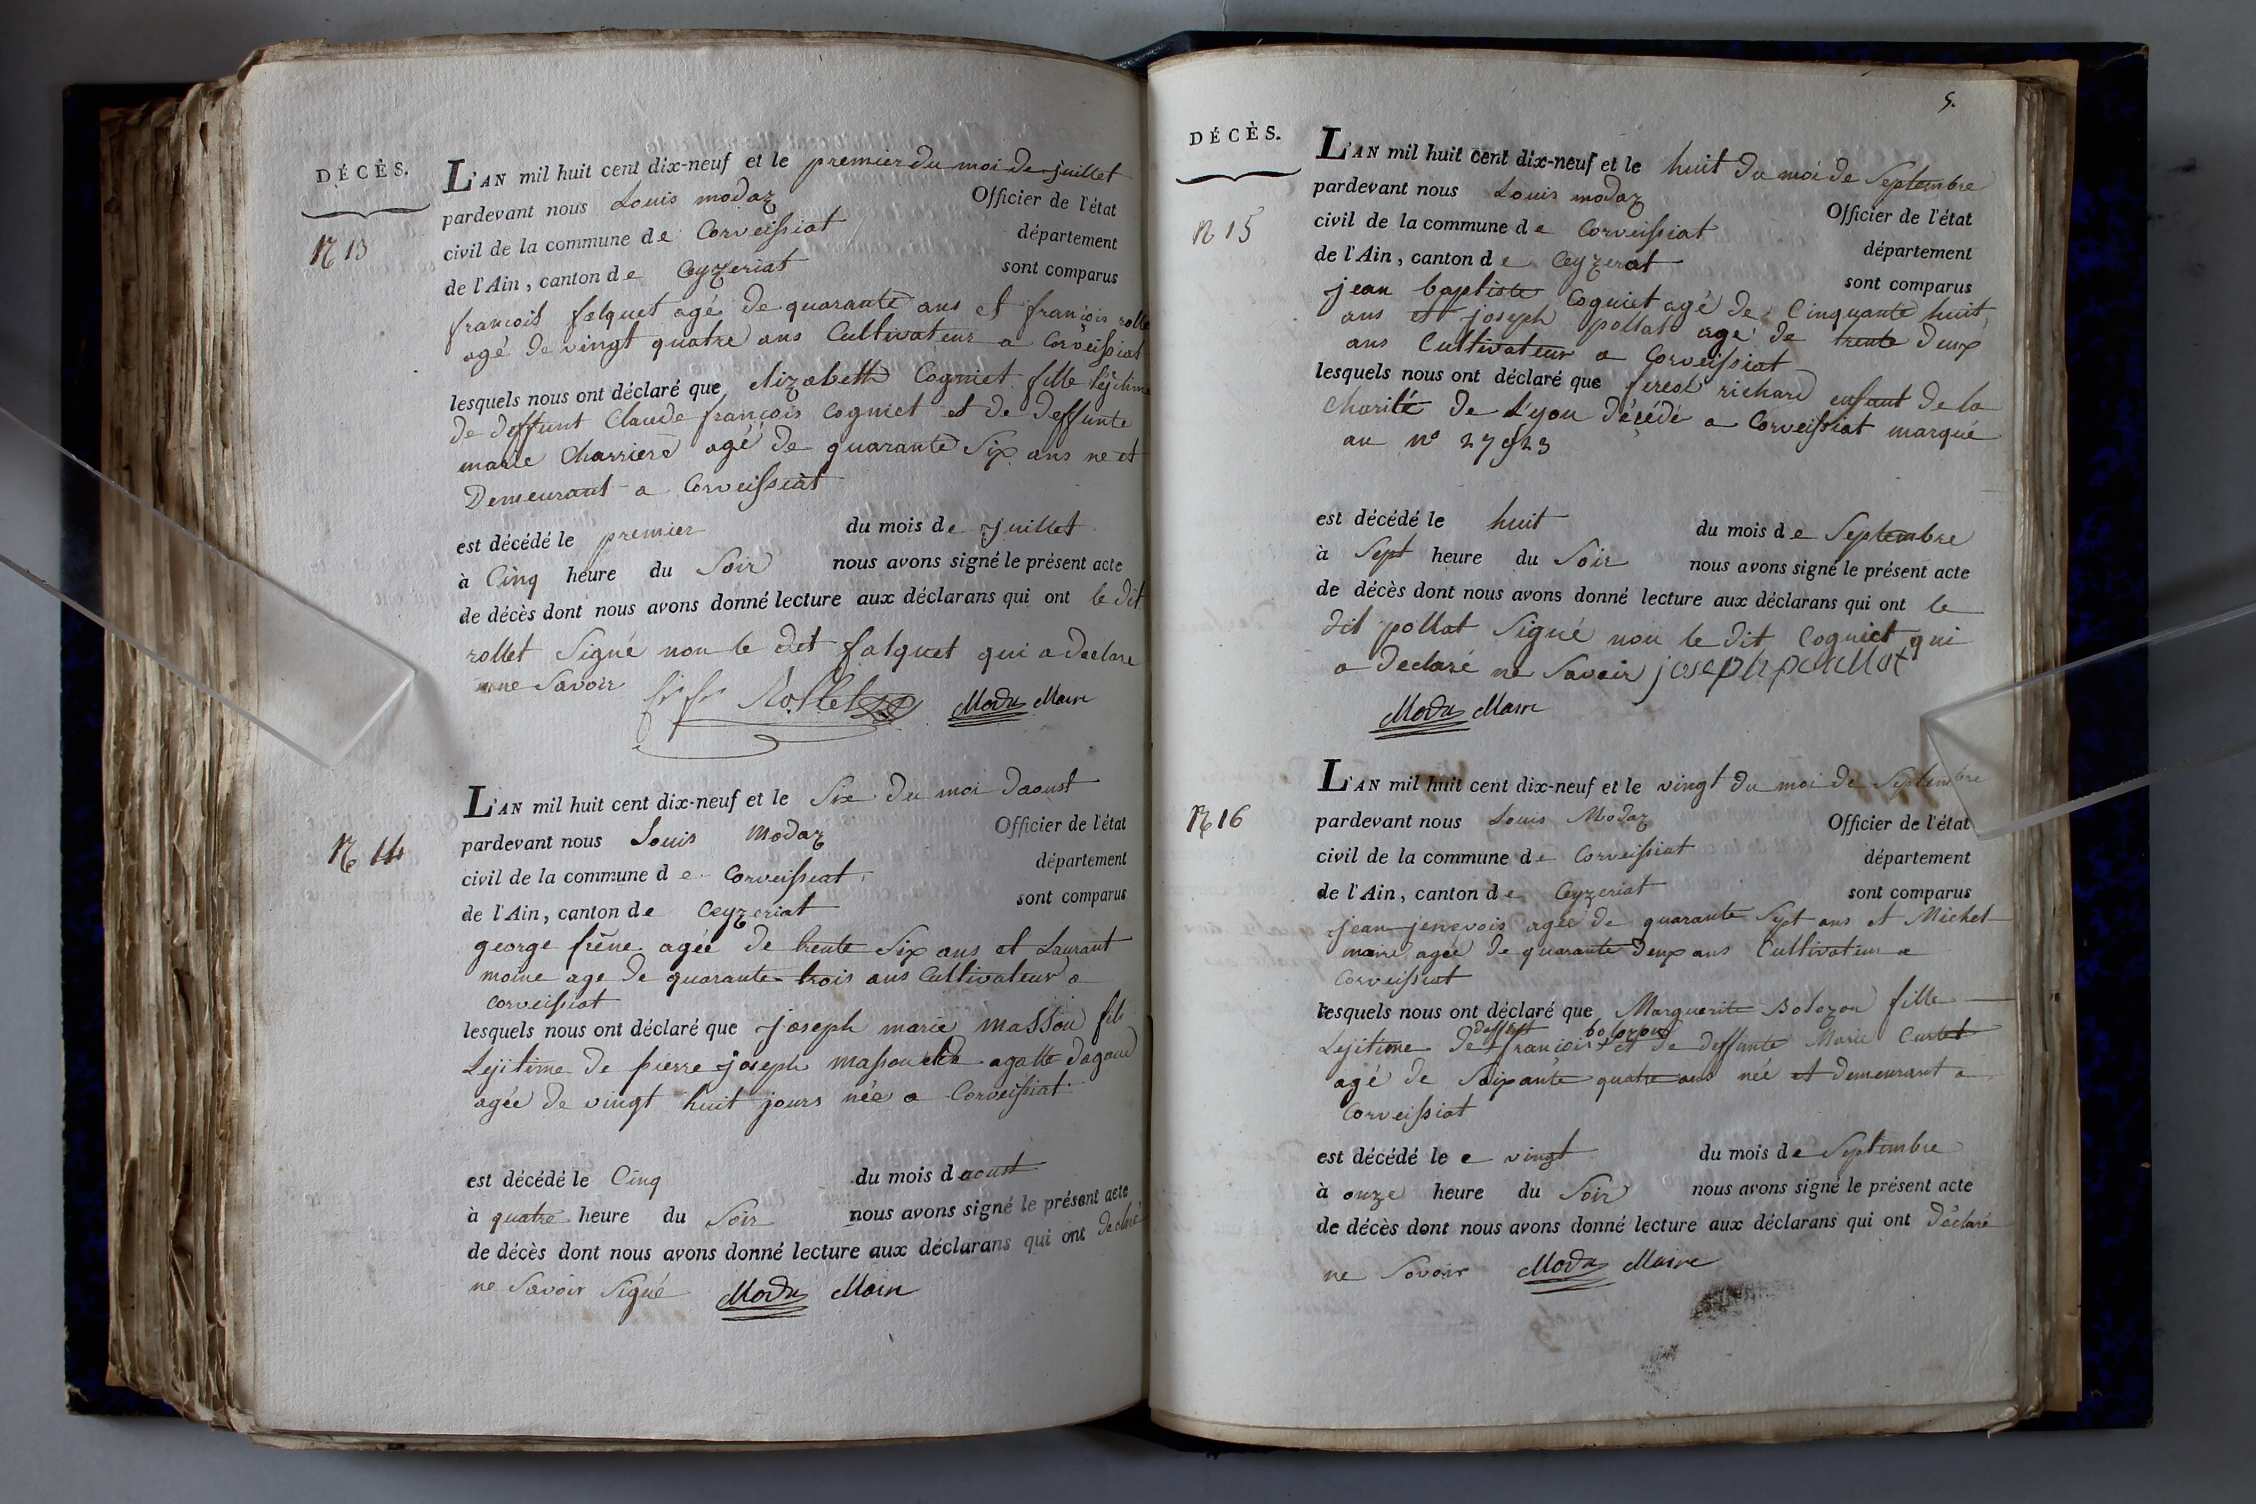 DÉCÈS.
N 13
L'AN mil huit cent dix-neuf et le premier du moi de juillet
pardevant nous Louis modaz Officier de l'état
civil de la commune de Corveissiat département
de l'Ain, canton de Ceyzeriat sont comparus
francois falquet agé de quarante ans et francois rollet
agé de vingt quatre ans Cultivateur a Corveissiat
lesquels nous ont déclaré que elizabeth Cogniet fille lejitime
de deffunt Claude françois Cogniet et de deffunte
marie Charriere agé de quarante Six ans ne et
Demeurant a Corveissiat
est décédé le premier du mois de juillet
à Cinq heure du Soir nous avons signé le présent acte
de décès dont nous avons donné lecture aux déclarans qui ont le dit
rollet Signé non le dit falquet qui a declare
ne Savoir Rollet Moda Maire
N 14
L'AN mil huit cent dix-neuf et le Six du moi daoust
pardevant nous Louis modaz Officier de l'état
civil de la commune de Corveissiat département
de l'Ain, canton de Ceyzeriat sont comparus
george frêne agée de trente Six ans et Laurant
moine age de quarante trois ans Cultivateur a
Corveissiat
lesquels nous ont déclaré que joseph marie masson fils
Lejitime de pierre joseph masson et de agatte dagoud
agée de vingt huit jours née a Corveissiat
est décédé le Cinq du mois daoust
à quatre heure du Soir nous avons signé le présent acte
de décès dont nous avons donné lecture aux déclarans qui ont declaré
ne Savoir Signé Moda Maire
5.
DÉCÈS.
N 15
L'AN mil huit cent dix-neuf et le huit du moi de Septembre
pardevant nous Louis modaz Officier de l'état
civil de la commune de Corveissiat département
de l'Ain, canton de Ceyzeriat sont comparus
jean baptiste Cogniet agé de Cinquante huit
ans et joseph pollat agé de trente deux
ans Cultivateur a Corveissiat
lesquels nous ont déclaré que fereol richard enfant de la
Charité de Lyon décédé a Corveissiat marqué
au n° 27923
est décédé le huit du mois de Septembre
à Sept heure du Soir nous avons signé le présent acte
de décès dont nous avons donné lecture aux déclarans qui ont le
dit pollat Signé non le dit Cogniet qui
a declaré ne Savoir joseph poullat
Moda Maire
N 16
L'AN mil huit cent dix-neuf et le vingt du moi de Septembre
pardevant nous Louis Modaz Officier de l'état
civil de la commune de Corveissiat département
de l'Ain, canton de Ceyzeriat sont comparus
jean jenevois agée de quarante Sept ans et Michel
maire agée de quarante deux ans Cultivateur a
Corveissiat
lesquels nous ont déclaré que Marguerite Bolozon fille
deffunt bolozon
Lejitime de francois et de deffunte Marie Curtet
agé de Soixante quatre ans née et demeurant a
Corveissiat
est décédé le e vingt du mois de Septembre
à onze heure du Soir nous avons signé le présent acte
de décès dont nous avons donné lecture aux déclarans qui ont déclaré
ne Savoir Moda Maire